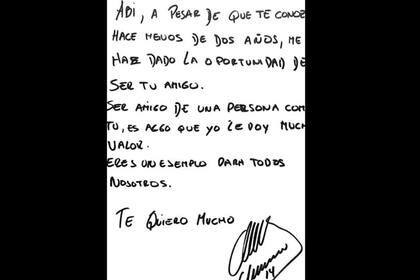 ABI, A PESAR DE QUE TE CONOZ
HACE MENOS DE DOS AÑOS, ME
HAZ DADO LA OPORTUNIDAD DE
SER TU AMIGO.
SER AMIGO DE UNA PERSONA COM
TU, ES ALGO QUE YO LE DOY MUCH
VALOR.
ERES UN EJEMPLO PARA TODOS
NOSOTROS.
TE QUIERO MUCHO
14